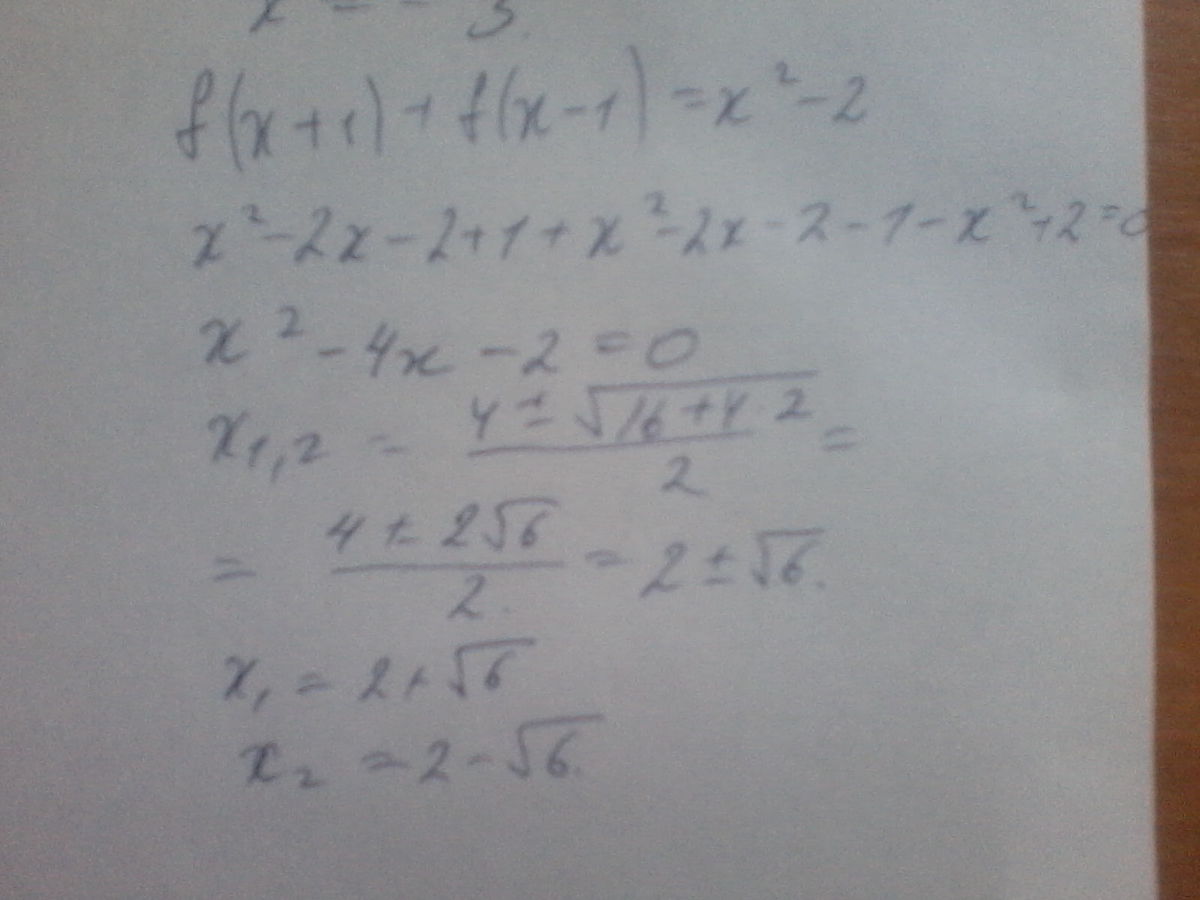 f(x+1)+f(x-1)=x²-2
x²-2x-2+1+x²-2x-2-1-x²+2=0
x²-4x-2=0
x₁,₂ = (4±√(16+4·2))/2 =
= (4±2√6)/2. = 2±√6.
x₁=2+√6
x₂=2-√6.